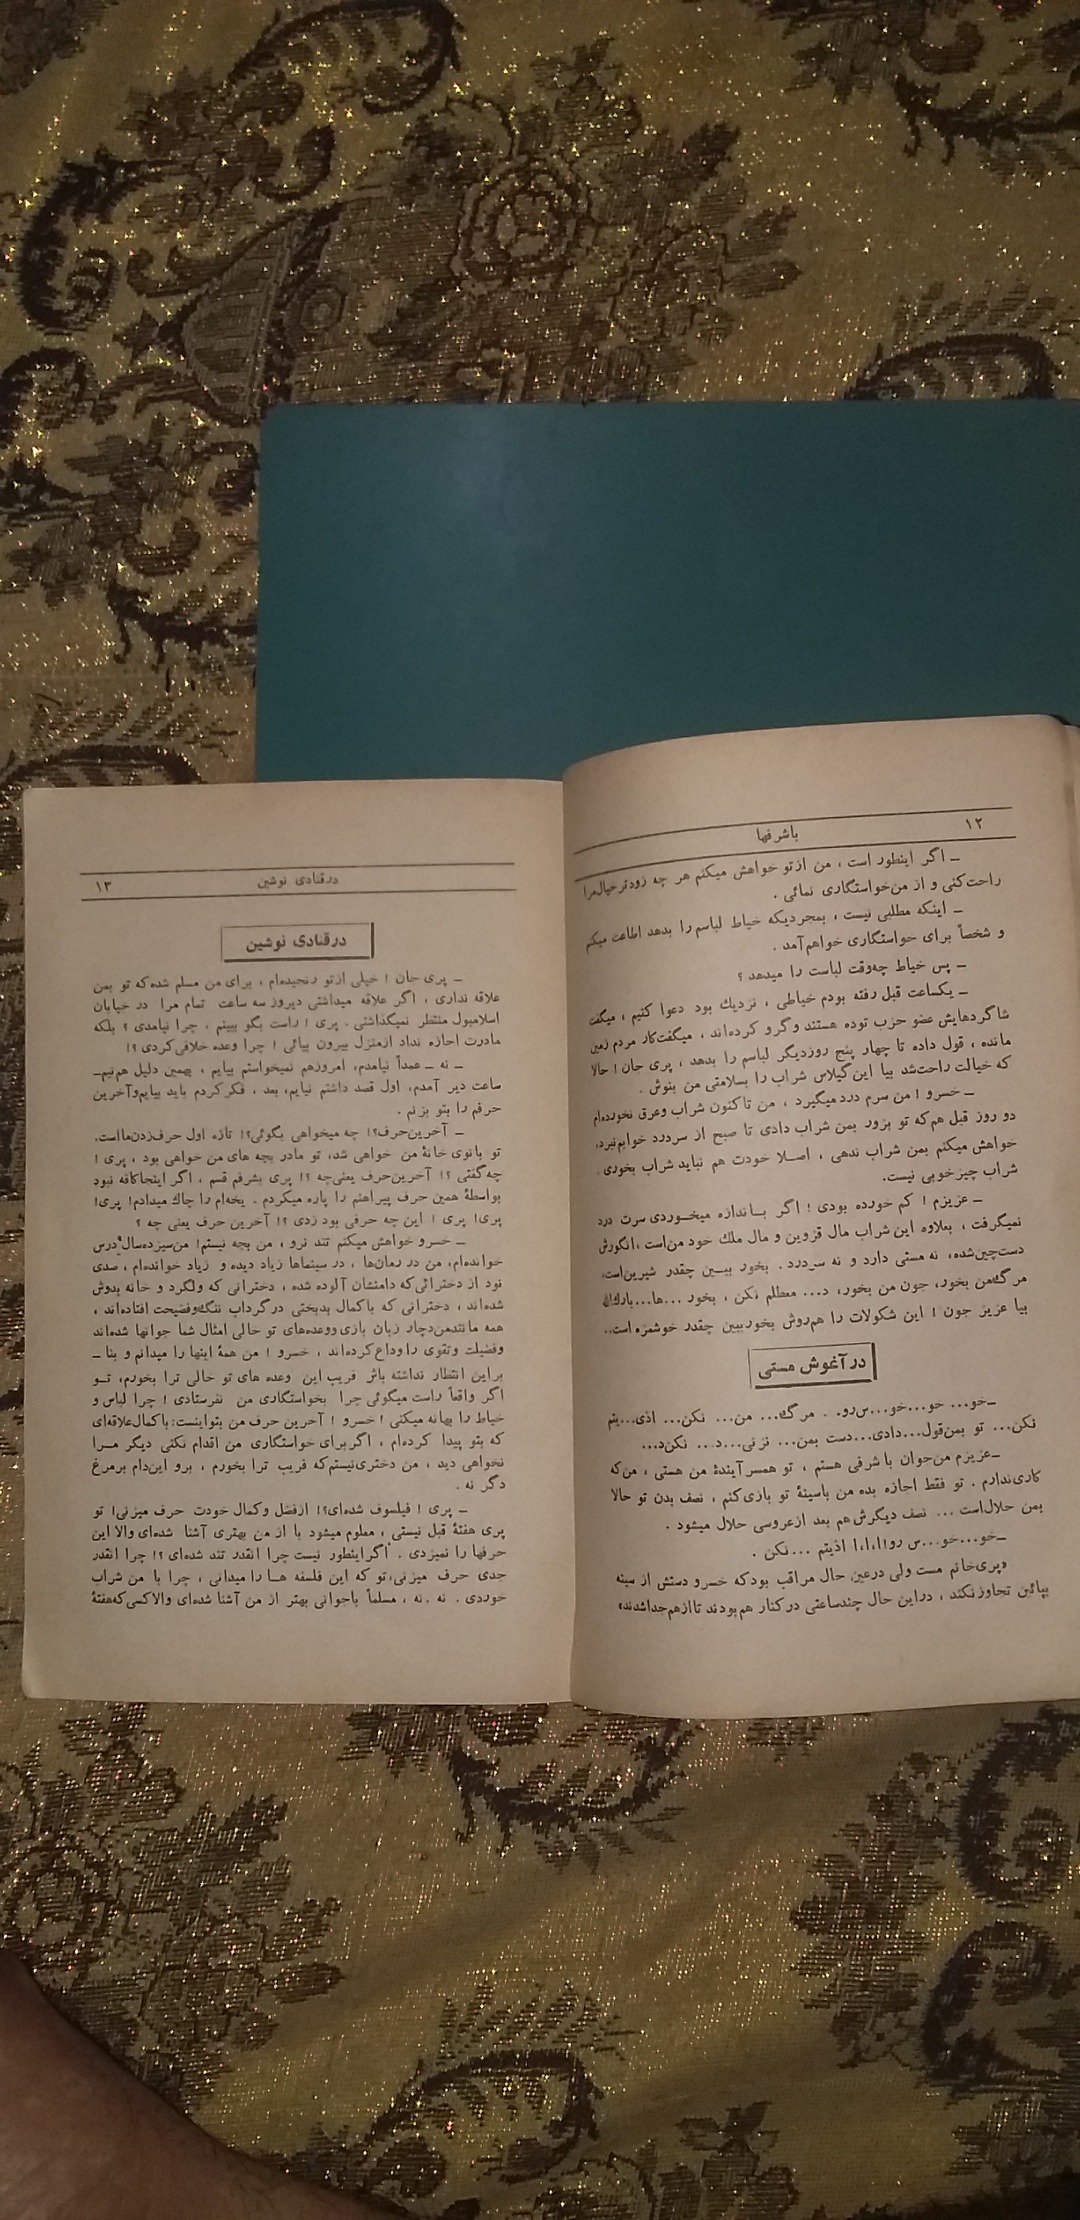 ۱۲
باشرفها
ــ اگر اینطور است ، من ازتو خواهش میکنم هر چه زودترخیال‌مرا
راحت‌کنی و از من‌خواستگاری نمائی .
ــ اینکه مطلبی نیست ، بمجردیکه خیاط لباسم را بدهد اطاعت میکنم
و شخصاً برای خواستگاری خواهم‌آمد .
ــ پس خیاط چه‌وقت لباست را میدهد ؟
ــ یکساعت قبل رفته بودم خیاطی ، نزدیك بود دعوا کنیم ، میگفت
شاگردهایش عضو حزب توده هستند وگرو کرده‌اند ، میگفت‌کار مردم زمین
مانده ، قول داده تا چهار پنج روزدیگر لباسم را بدهد ، پری جان ! حالا
که خیالت راحت‌شد بیا این‌گیلاس شراب را بسلامتی من بنوش .
ــ خسرو ! من سرم درد میگیرد ، من تاکنون شراب وعرق نخورده‌ام
دو روز قبل هم‌که تو بزور بمن شراب دادی تا صبح از سردرد خوابم‌نبرد،
خواهش میکنم بمن شراب ندهی ، اصـلا خودت هم نباید شراب بخوری .
شراب چیزخوبی نیست.
ــ عزیزم ! کم خورده بودی ! اگر بـاندازه میخـوردی سرت درد
نمیگرفت ، بعلاوه این شراب مال قزوین و مال ملك خود من‌است ،انگورش
دست‌چین‌شده، نه مستی دارد و نه سردرد . بخور ببـین چقدر شیرین‌است،
مرگ‌من بخور، جون من بخور، د... معطلم نکن ، بخور ...ها...بارك‌الله
بیا عزیز جون ! این شکولات را هم‌روش بخورببین چقدر خوشمزه است..
درآغوش مستی
ــخو... خو...خو...س‌رو. . مرگ... من... نکن... اذی...یتم
نکن... تو بمن‌قول...دادی...دست بمن... نز نی...د... نکن‌د...
ــعزیزم من‌جوان با شرفی هستم ، تو همسرآیندهٔ من هستی ، من‌که
کاری‌ندارم . تو فقط اجازه بده من باسینهٔ تو بازی‌کنم ، نصف بدن تو حالا
بمن حلال‌است ... نصف دیگرش‌هم بعد ازعروسی حلال میشود .
ــخو...خو...س رو!ا،ا،ا اذیتم ...نکن .
«پری‌خانم مست ولی درعین حال مراقب بودکه خسرو دستش از سینه
بپائین تجاوز نکند ، دراین حال چندساعتی درکنار هم‌بودند تاازهم‌جداشدند»
درقنادی نوشین
۱۳
درقنادی نوشین
ــ پری جان ! خیلی ازتو رنجیده‌ام ، برای من مسلم شده‌که تو بمن
علاقه نداری ، اگر علاقه میداشتی دیروز سه ساعت تمام مرا در خیابان
اسلامبول منتظر نمیگذاشتی . پری ! راست بگو ببینم ، چرا نیامدی ؟ بلکه
مادرت اجازه نداد ازمنزل بیرون بیائی ! چرا وعده خلافی‌کردی ؟!
ــ نه ــ عمداً نیامدم، امروزهم نمیخواستم بیایم ، بهمین دلیل هم‌نیم‌ــ
ساعت دیر آمدم، اول قصد داشتم نیایم، بعد ، فکرکردم باید بیایم‌وآخرین
حرفم را بتو بزنم .
ــ آخرین‌حرف؟! چه میخواهی بگوئی؟! تازه اول حرف‌زدن‌مااست.
تو بانوی خانهٔ من خواهی شد، تو مادر بچه های من خواهی بود ، پری !
چه‌گفتی ؟! آخرین‌حرف یعنی‌چه ؟! پری بشرفم قسم ، اگر اینجاکافه نبود
بواسطهٔ همین حرف پیراهنم را پاره میکردم . یخه‌ام را چاك میدادم! پری!
پری! پری ! این چه حرفی بود زدی ؟! آخرین حرف یعنی چه ؟
ــ خسرو خواهش میکنم تند نرو ، من بچه نیستم! من‌سیزده‌سال درس
خوانده‌ام، من در رمان‌ها ، در سینماها زیاد دیده و زیاد خوانده‌ام ، سدی
نود از دخترانی‌که دامنشان آلوده شده ، دخترانی که ولگرد و خانه بدوش
شده‌اند ، دخترانی که باکمال بدبختی درگرداب ننگ‌وفضیحت افتاده‌اند ،
همه مانندمن‌دچار زبان بازی ووعده‌های تو خالی امثال شما جوانها شده‌اند
وفضیلت وتقوی راوداع‌کرده‌اند ، خسرو ! من همهٔ اینها را میدانم و بنا ــ
براین انتظار نداشته باش فریب این وعده های تو خالی ترا بخورم، تــو
اگر واقعاً راست میگوئی چرا بخواستگاری من نفرستادی ! چرا لباس و
خیاط را بهانه میکنی ! خسرو ! آخرین حرف من بتواینست: باکمال‌علاقه‌ای
که بتو پیدا کرده‌ام ، اگربرای خواستگاری من اقدام نکنی دیگر مــرا
نخواهی دید ، من دختری‌نیستم‌که فریب ترا بخورم ، برو این‌دام برمرغ
دگر نه .
ــ پری ! فیلسوف شده‌ای؟! ازفضل وکمال خودت حرف میزنی! تو
پری هفتهٔ قبل نیستی ، معلوم میشود با از من بهتری آشنا شده‌ای والا این
حرفها را نمیزدی . اگراینطور نیست چرا انقدر تند شده‌ای ؟! چرا انقدر
جدی حرف میزنی،تو که این فلسفه هــا را میدانی ، چرا با من شراب
خوردی . نه . نه ، مسلماً باجوانی بهتر از من آشنا شده‌ای والاکسی‌که‌هفتهٔ